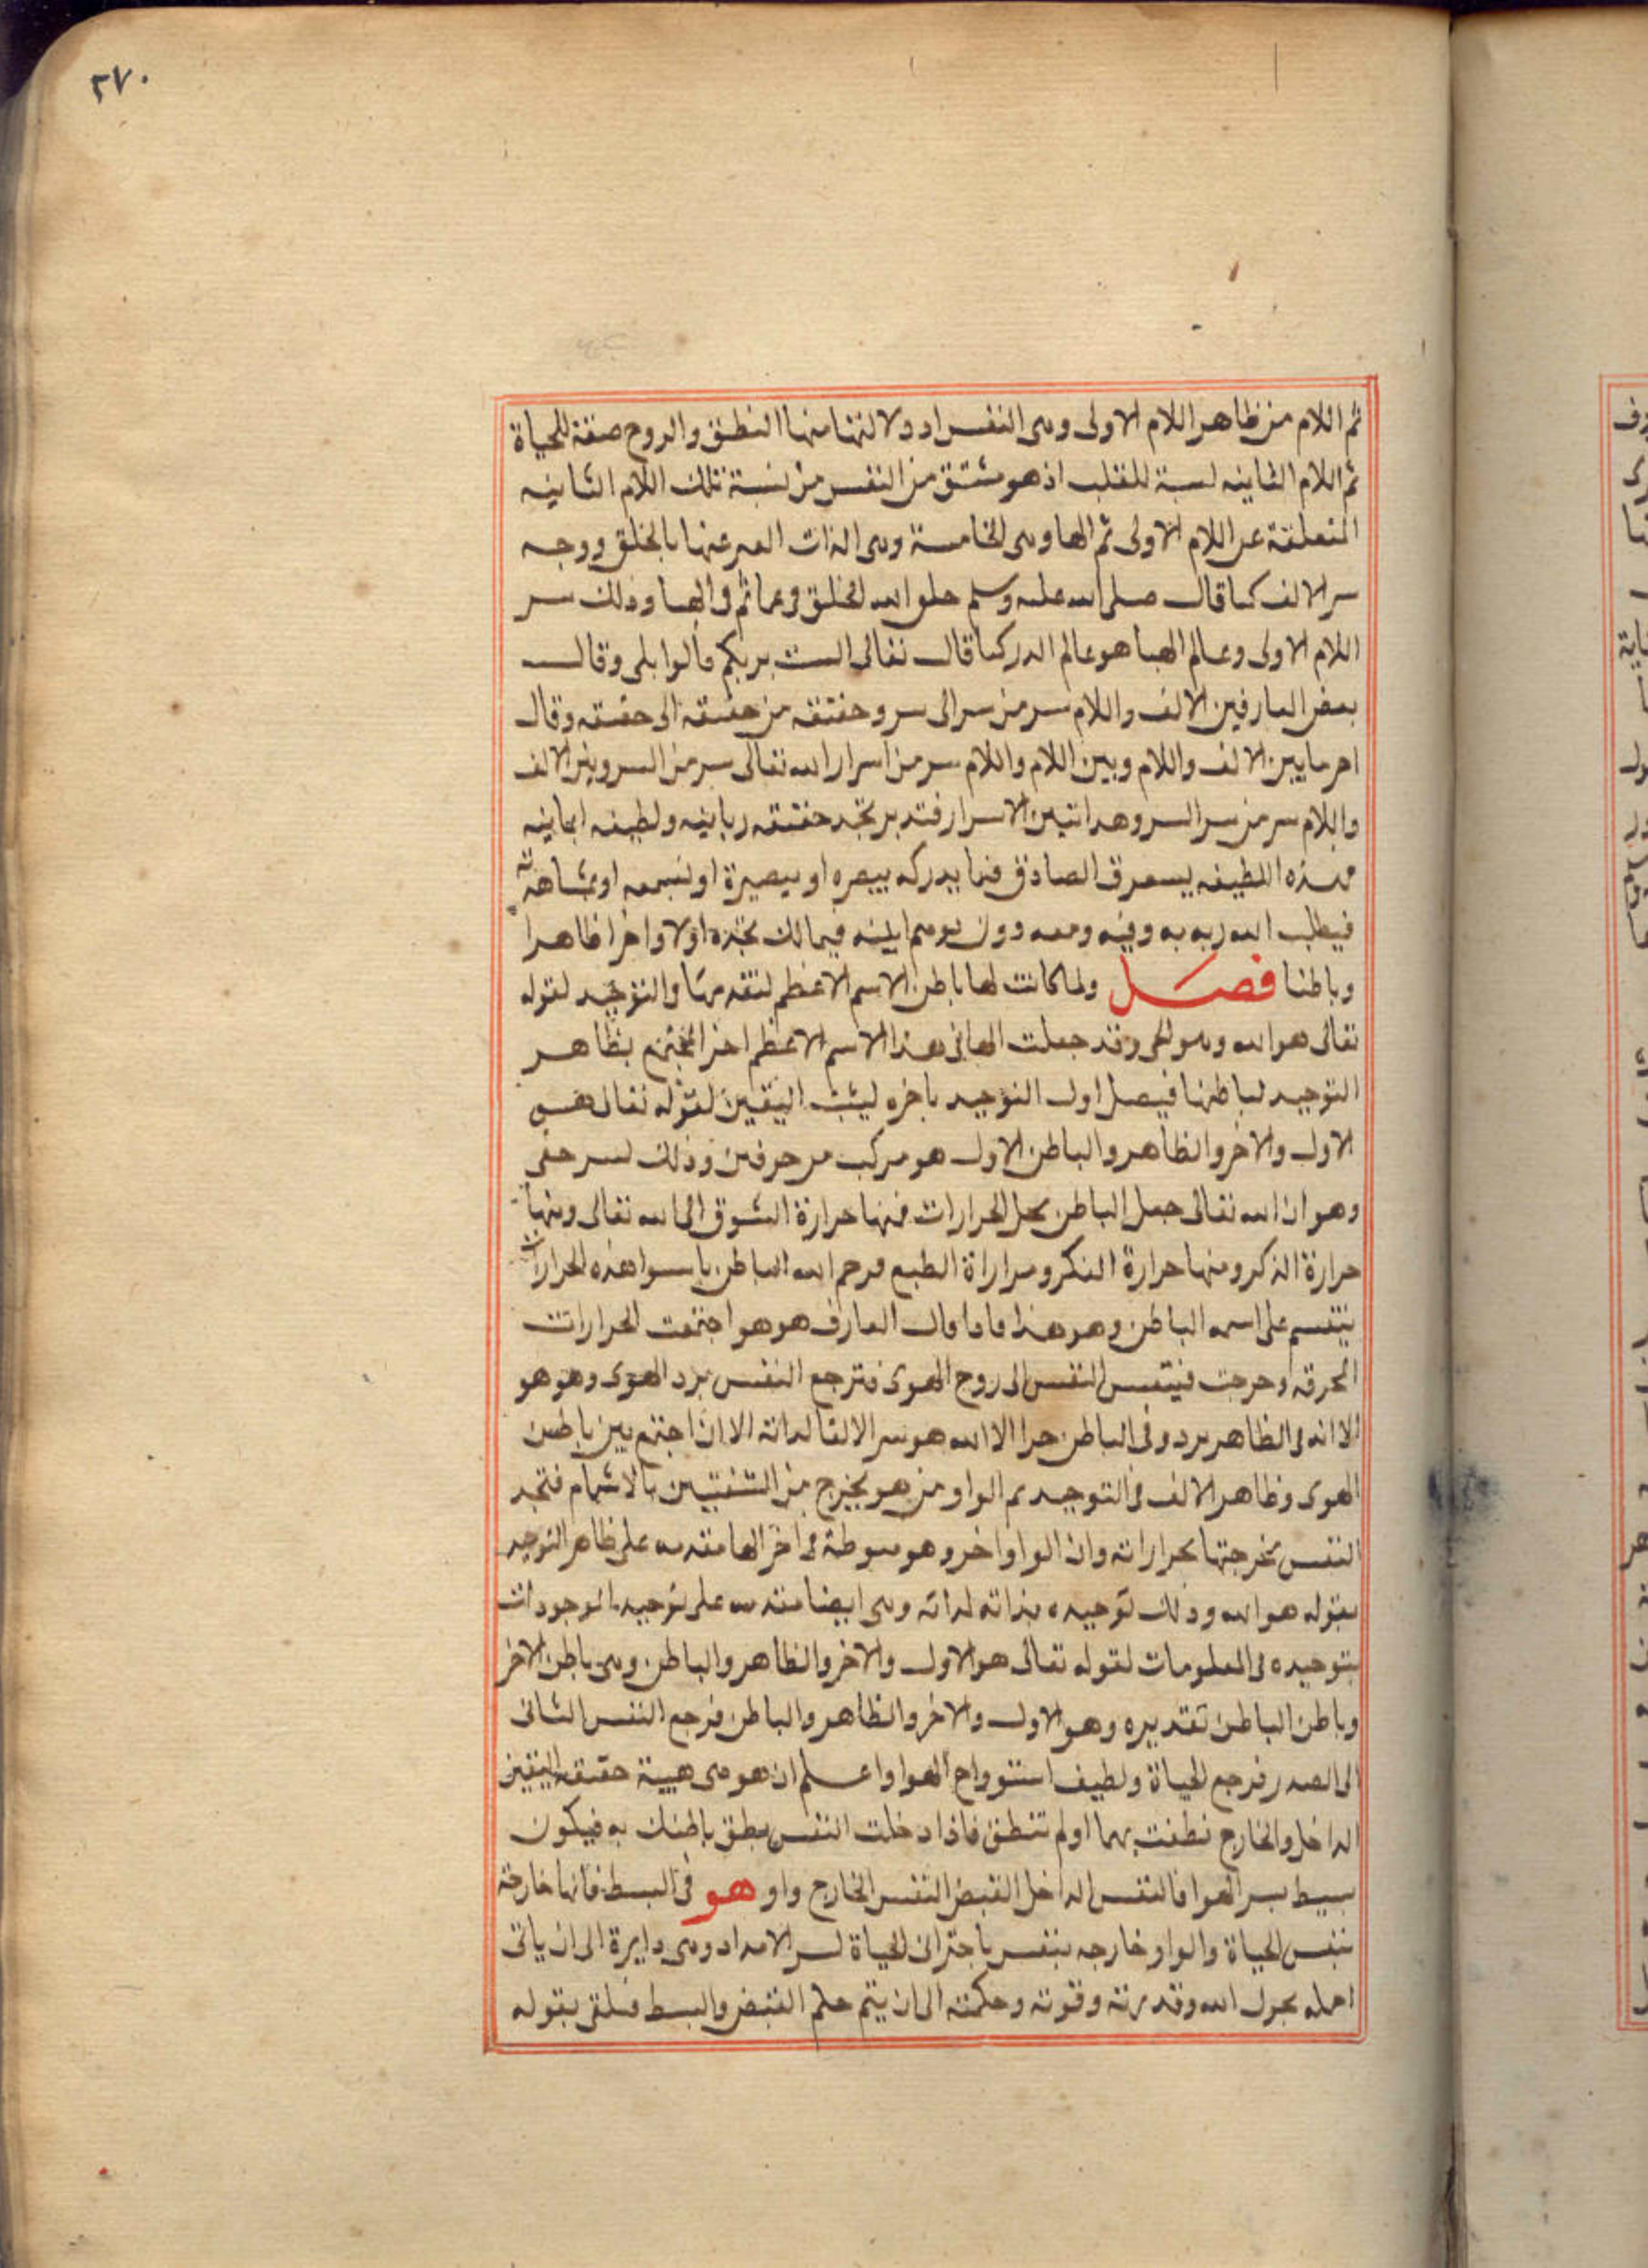 ٢٧٠
ثم اللام من ظاهر اللام الاولى وهى النفس اد دلالتها منها النطق والروح صفة للحياة
ثم اللام الثانيه لسبة للقلب اذ هو مشتق من النفس من نسبة تلك اللام الثانيه
المتعلقة عن اللام الاولى ثم الها وهى الخامسة وهى الذات المعبر عنها بالخلق ووجه
سر الالف كما قال صلى الله عليه وسلم خلق الله الخلق فى عما ثم فى الهبا وذلك سر
اللام الاولى وعالم الهبا هو عالم الدر كما قال تعالى الست بربكم قالوا بلى وقال
بعض العارفين الالف واللام سر من سر الى سر وحقيقه من حقيقه الى حقيقه وقال
اخر ما بين الالف واللام وبين اللام واللام سر من اسرار الله تعالى سر من السر وبين الالف
واللام سر من سر السر وهذا تبين الاسرار فتدبر تجد حقيقه ربانيه ولطيفه ايمانيه
فهذه اللطيفه يستعرق الصادق فيما يدركه ببصره او ببصيرة او لسمعه او بمشاهدة
فيطلب الله ربه به وفيه ومعه دون توهم اينيه فيما لك تجده اولا واخرا ظاهرا
وباطنا فصل ولما كانت لها باطن الاسم الاعظم لتقدمها والتوحيد لقوله
تعالى هو الله وهو الحى وقد جعلت الها فى هذا الاسم الاعظم اخرا لتختم بظاهر
التوحيد لباطنها فيصل اول التوحيد باخره ليثبت اليقين لقوله تعالى هو
الاول والاخر والظاهر والباطن الاول هو مركب من حرفين وذلك لسر خفى
وهو ان الله تعالى جعل الباطن محل الحرارات فمنها حرارة الشوق الى الله تعالى ومنها
حرارة الذكر ومنها حرارة الفكر ومرارات الطبع فرحم الله الباطن باسوا هذه الحرارات
يتقسم على اسمه الباطن وهو هذا فاذا قال العارف هو هو اجتمعت الحرارات
المحرقه وخرجت فيتنفس النفس الى روح الهوى فترجع النفس برد الهوى وهو هو
الا انه فى الظاهر برد وفى الباطن حرا لا الله هو سر الالف لذاته الا ان اجتمع بين باطن
الهوى وظاهر الالف فى التوحيد ثم الواو من هو يخرج من الشفتين بالاشمام فتجد
النفس مخرجتها بحراراته وان الواو اخر وهو منوطة فى اخر الها متقدمه على ظاهر التوحيد
بقوله هو الله وذلك توحيده بذاته لذاته وهى ايضا متقدمه على توحيد الموجودات
بتوحيده فى المعلومات لقوله تعالى هو الاول والاخر والظاهر والباطن وهى باطن الاخر
وباطن الباطن تقديره وهو الاول والاخر والظاهر والباطن فرجع النفس الثانى
الى الصدر فرجع الحياة ولطيف استرواح الهوا واعلم ان هو هى هيبة حقيقه اليقين
الداخل والخارج نطقت بهما اولم تنطق فاذا دخلت النفس نطق باطنك به فيكون
بسيط سر الهوا فالنفس الداخل القبض النفس الخارج واو هو فى البسط فانها خارجة
بنفس الحياة والواو خارجه بنفس باجتر الى الحياة لسر الامداد وهى دايرة الى ان ياتى
اجله بحول الله وقدرته وقوته وحكمته الى ان يتم حكم القبض والبسط فيلقى بقوله